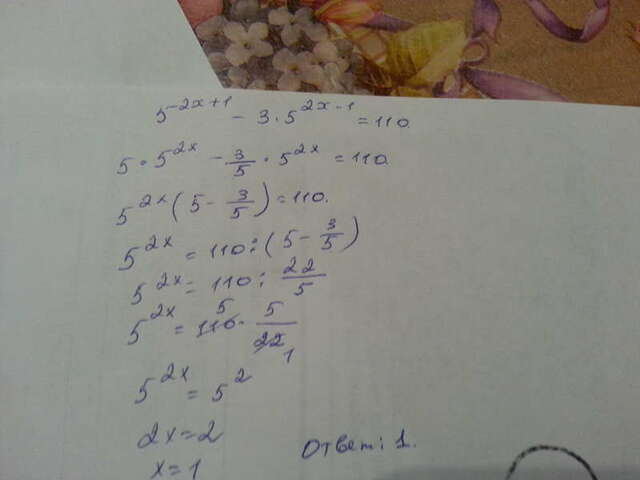 5^{2x+1} - 3 · 5^{2x-1} = 110.
5 · 5^{2x} - \frac{3}{5} · 5^{2x} = 110.
5^{2x} ( 5 - \frac{3}{5} ) = 110.
5^{2x} = 110 : ( 5 - \frac{3}{5} )
5^{2x} = 110 : \frac{22}{5}
5^{2x} = \overset{5}{110} · \frac{5}{22_1}
5^{2x} = 5^2
2x = 2
x = 1
Ответ: 1.